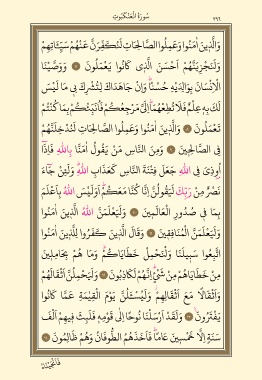 سُورَةُ الْعَنْكَبُوتِ ٣٩٦
وَالَّذِينَ اٰمَنُوا وَعَمِلُوا الصَّالِحَاتِ لَنُكَفِّرَنَّ عَنْهُمْ سَيِّـَٔاتِهِمْ
وَلَنَجْزِيَنَّهُمْ اَحْسَنَ الَّذِى كَانُوا يَعْمَلُونَ ۞ وَوَصَّيْنَا
الْاِنْسَانَ بِوَالِدَيْهِ حُسْنًا وَاِنْ جَاهَدَاكَ لِتُشْرِكَ بِى مَا لَيْسَ
لَكَ بِهِ عِلْمٌ فَلَا تُطِعْهُمَا اِلَىَّ مَرْجِعُكُمْ فَاُنَبِّئُكُمْ بِمَا كُنْتُمْ
تَعْمَلُونَ ۞ وَالَّذِينَ اٰمَنُوا وَعَمِلُوا الصَّالِحَاتِ لَنُدْخِلَنَّهُمْ
فِى الصَّالِحِينَ ۞ وَمِنَ النَّاسِ مَنْ يَقُولُ اٰمَنَّا بِاللّٰهِ فَاِذَا
اُوذِىَ فِى اللّٰهِ جَعَلَ فِتْنَةَ النَّاسِ كَعَذَابِ اللّٰهِ وَلَئِنْ جَاءَ
نَصْرٌ مِنْ رَبِّكَ لَيَقُولُنَّ اِنَّا كُنَّا مَعَكُمْ اَوَلَيْسَ اللّٰهُ بِاَعْلَمَ
بِمَا فِى صُدُورِ الْعَالَمِينَ ۞ وَلَيَعْلَمَنَّ اللّٰهُ الَّذِينَ اٰمَنُوا
وَلَيَعْلَمَنَّ الْمُنَافِقِينَ ۞ وَقَالَ الَّذِينَ كَفَرُوا لِلَّذِينَ اٰمَنُوا
اتَّبِعُوا سَبِيلَنَا وَلْنَحْمِلْ خَطَايَاكُمْ وَمَا هُمْ بِحَامِلِينَ
مِنْ خَطَايَاهُمْ مِنْ شَىْءٍ اِنَّهُمْ لَكَاذِبُونَ ۞ وَلَيَحْمِلُنَّ اَثْقَالَهُمْ
وَاَثْقَالًا مَعَ اَثْقَالِهِمْ وَلَيُسْـَٔلُنَّ يَوْمَ الْقِيٰمَةِ عَمَّا كَانُوا
يَفْتَرُونَ ۞ وَلَقَدْ اَرْسَلْنَا نُوحًا اِلٰى قَوْمِهِ فَلَبِثَ فِيهِمْ اَلْفَ
سَنَةٍ اِلَّا خَمْسِينَ عَامًا فَاَخَذَهُمُ الطُّوفَانُ وَهُمْ ظَالِمُونَ ۞
فَاَنْجَيْنَاهُ